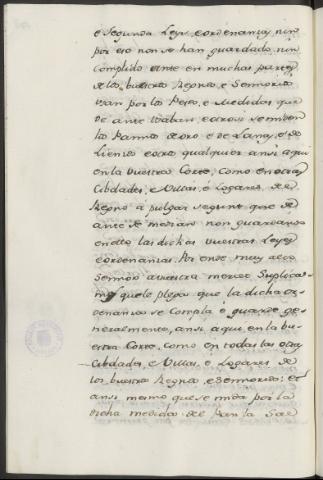 e Segunda Ley, e ordenanza, nin
por eso non se han guardado, nin
complido ante en muchas partes
de los buestros Regnos, e Sennorios
usan por los Pesos, e Medidas que
de ante usaban e acroi se miden
los Pannos de oro e de Lana, e de
Lienzos e otro qualquier ansi aqui
en la vuestra Corte, como en otras
Cibdades, e Villas, e Logares del
Regno a pulgar segunt que de
ante se median non guardando
en esto las dichas vuestras Leyes
e ordenanzas. Por ende muy alto
Sennor a vuestra merced Suplica-
mos que le plega que la dicha or-
denanza se compla e guarde ge-
neralmente, ansi aqui en la bu-
estra Corte, como en todas las otras
Cibdades, e Villas, e Logares de
los buestros Regnos, e Sennorios: Et
ansi mesmo que se mida por la
dicha medida del Pan la Sal